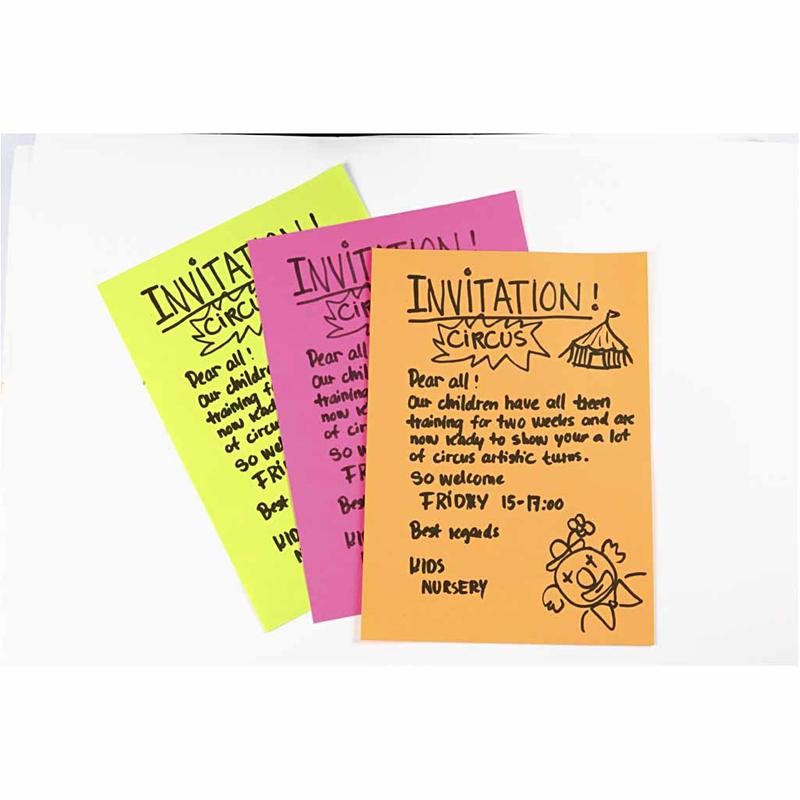 INVITATION!
CIRCUS
Dear all!
Our children
training fo
now ready
of circus
So wel
FRI
Best
KIDS
N
INVITATION!
CIR
Dear all
Our chil
training
now re
of cir
So w
FR
Best
KI
INVITATION!
CIRCUS
Dear all!
Our children have all been
training for two weeks and are
now ready to show your a lot
of circus artistic turns.
So welcome
FRIDAY 15-17:00
Best regards
KIDS
NURSERY